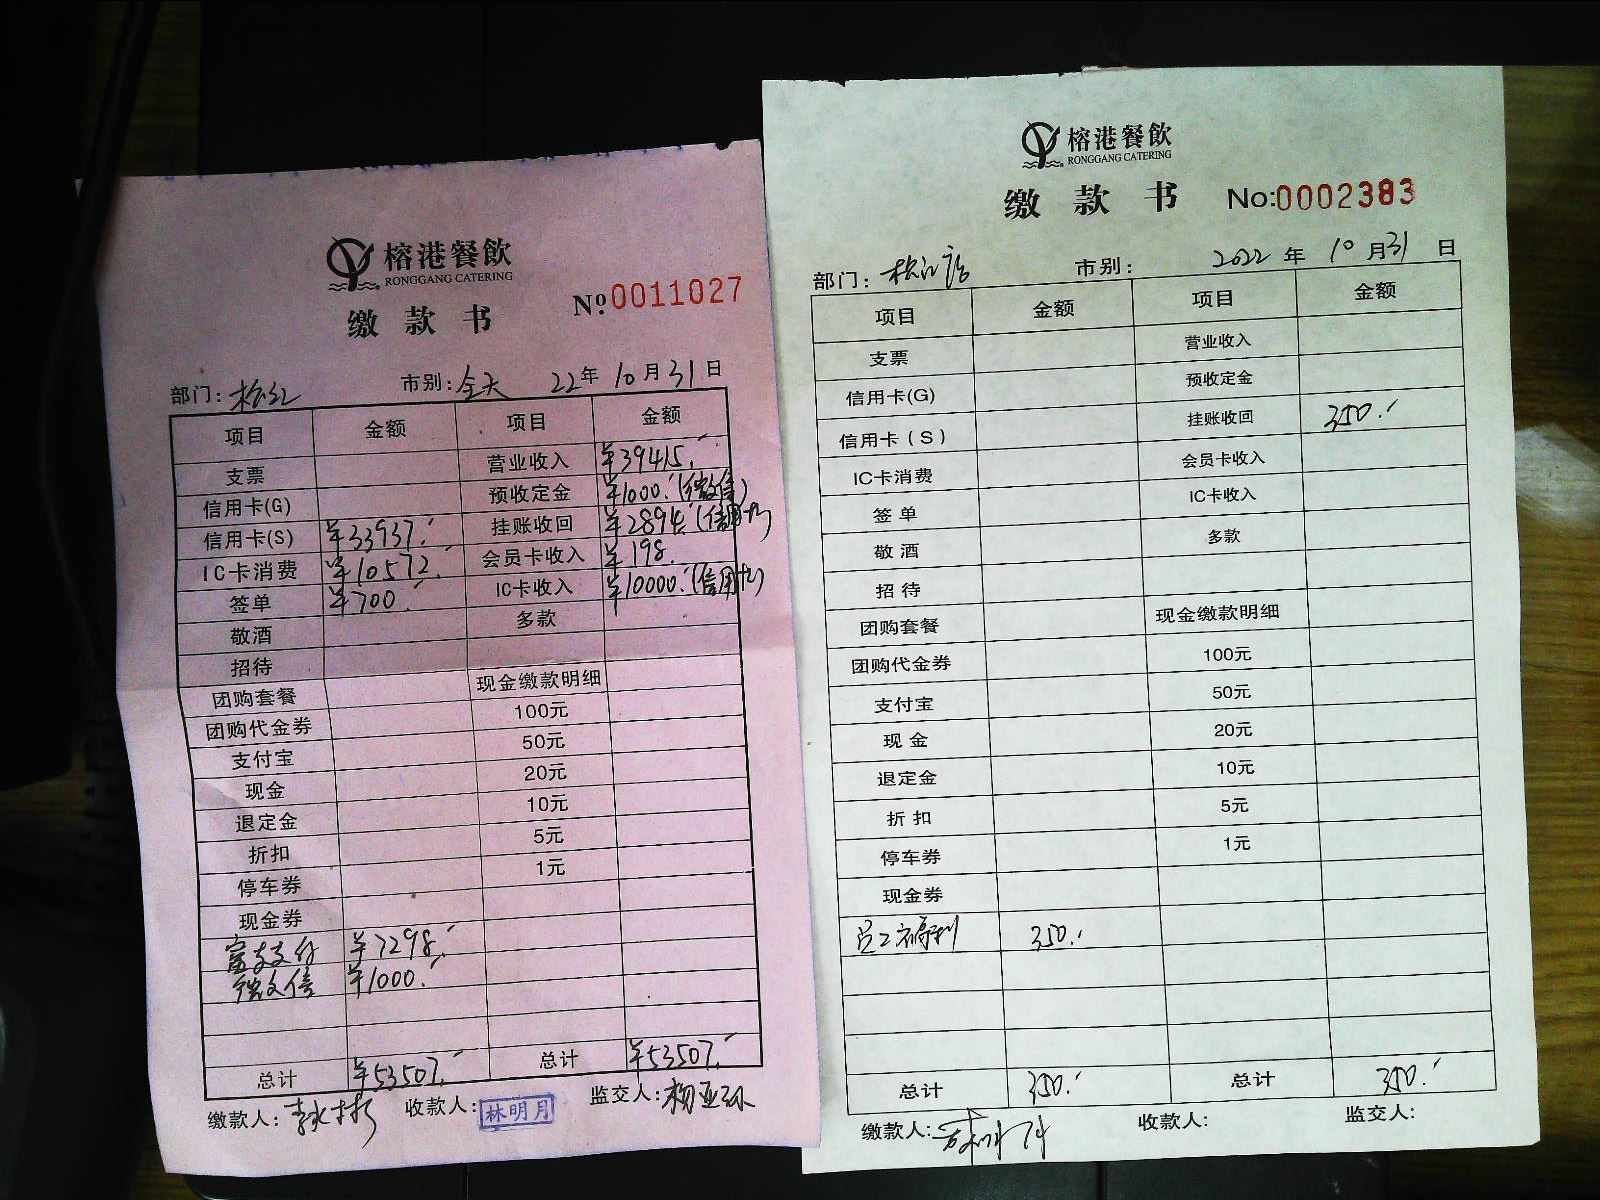 榕港餐飲
RONGGANG CATERING
缴款书 Nº 0011027
部门: 松江 市别: 全天 22年10月31日
项目 金额 项目 金额
支票 营业收入 ¥39415.-
信用卡(G) 预收定金 ¥1000.-(微信)
信用卡(S) ¥33937.- 挂账收回 ¥2894.-(信用卡)
IC卡消费 ¥10572.- 会员卡收入 ¥198.
签单 ¥700.- IC卡收入 ¥10000.-(信用卡)
敬酒 多款
招待
团购套餐 现金缴款明细
团购代金券 100元
支付宝 50元
现金 20元
退定金 10元
折扣 5元
停车券 1元
现金券
富友支付 ¥7298.-
微信 ¥1000.-
总计 ¥53507.- 总计 ¥53507.-
缴款人: 收款人: 林明月 监交人: 杨亚环
榕港餐飲
RONGGANG CATERING
缴款书 No:0002383
部门: 松江店 市别: 2022年10月31日
项目 金额 项目 金额
支票 营业收入
信用卡(G) 预收定金
信用卡(S) 挂账收回 350.-
IC卡消费 会员卡收入
签单 IC卡收入
敬酒 多款
招待
团购套餐 现金缴款明细
团购代金券 100元
支付宝 50元
现金 20元
退定金 10元
折扣 5元
停车券 1元
现金券
员工福利 350.-
总计 350.- 总计 350.-
缴款人: 收款人: 监交人: